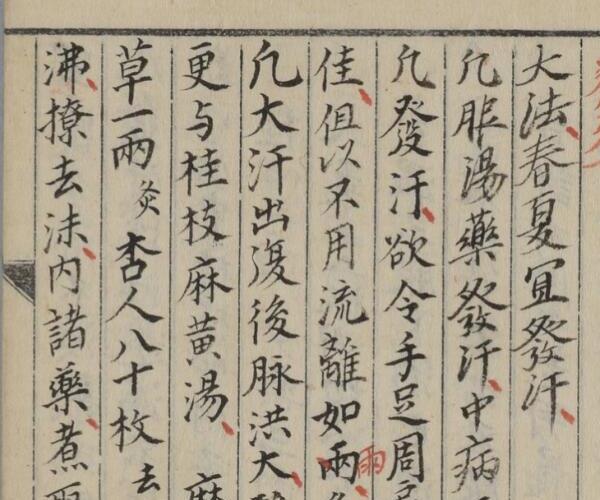 大法春夏冝發汗
凡服湯藥發汗中病
凡發汗欲令手足周
佳但以不用流離如兩雨
凡大汗出復後脉洪大
更与桂枝麻黄湯 麻
草一兩炙杏人八十枚去
沸撩去沫内諸藥煮